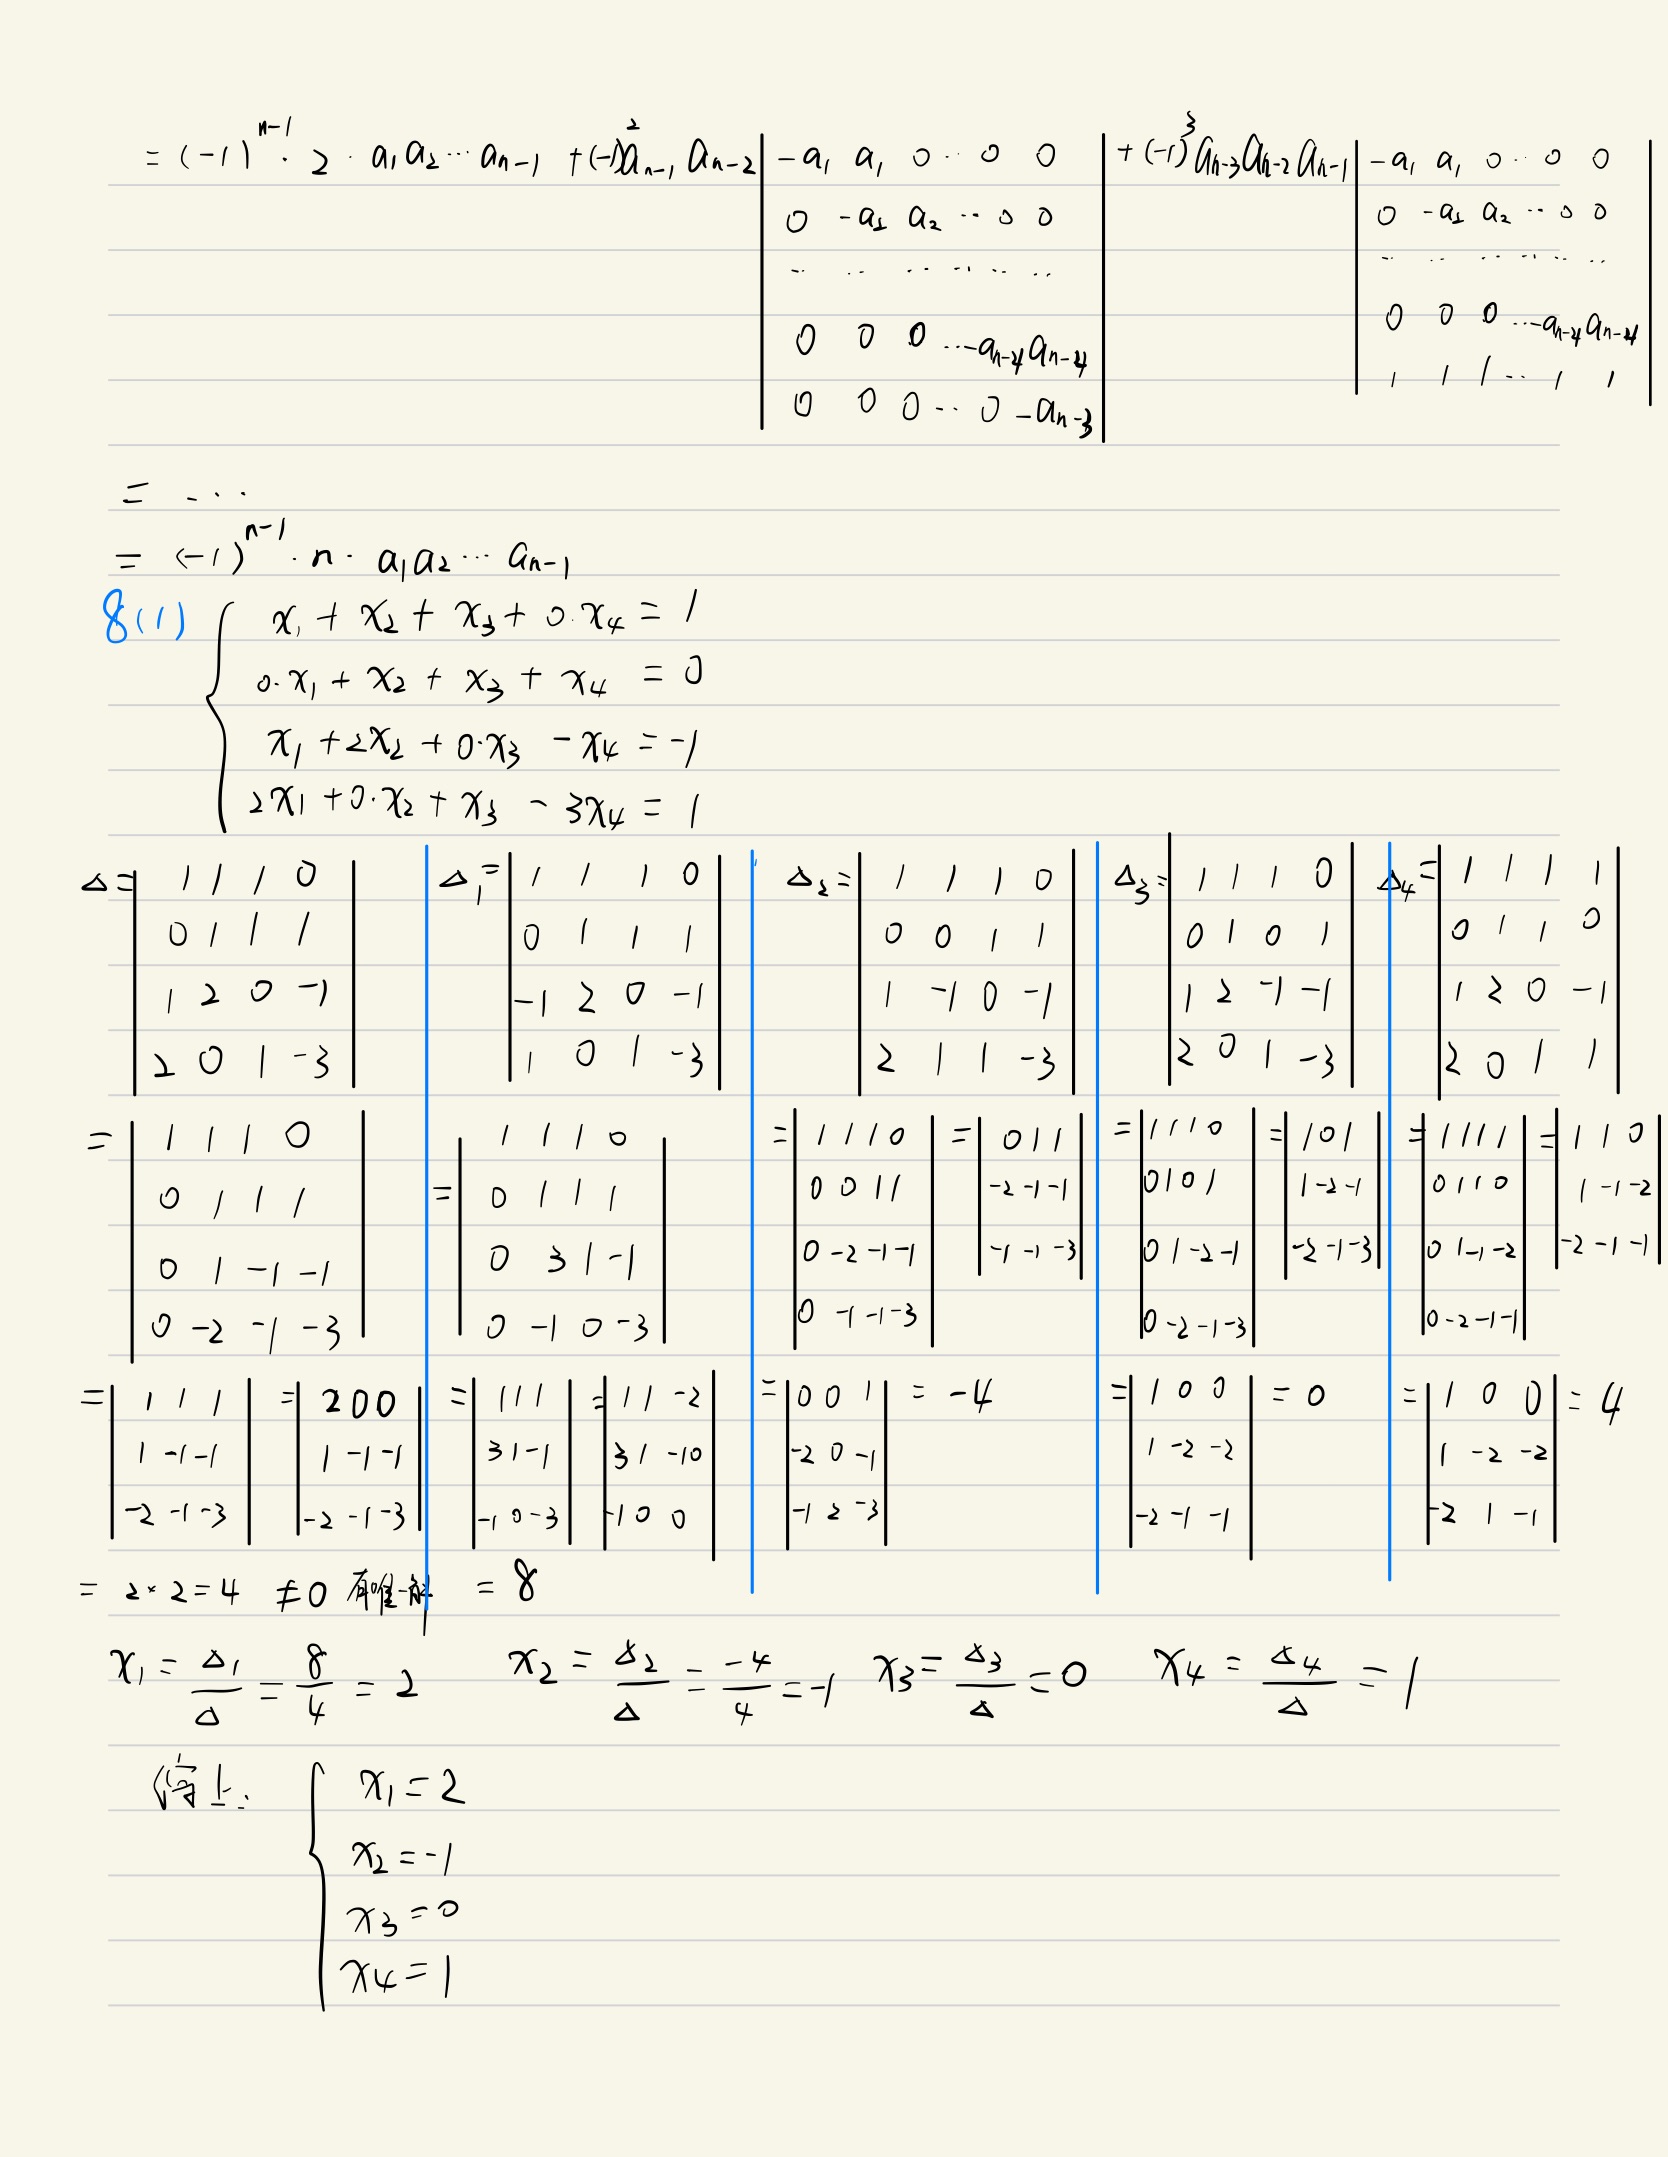 = (-1)^{n-1} · 2 · a₁a₂···a_{n-1} + (-1)² a_{n-1} a_{n-2} | -a₁ a₁ 0 ·· 0 0 | + (-1)³ a_{n-3}a_{n-2}a_{n-1} | -a₁ a₁ 0 ·· 0 0 |
| 0 -a₂ a₂ ·· 0 0 | | 0 -a₂ a₂ ·· 0 0 |
| ·· ·· ·· ·· ·· ·· | | ·· ·· ·· ·· ·· ·· |
| 0 0 0 ··· -a_{n-4} a_{n-4} | | 0 0 0 ··· -a_{n-4} a_{n-4} |
| 0 0 0 ·· 0 -a_{n-3} | | 1 1 1 ·· 1 1 |
= ···
= (-1)^{n-1} · n · a₁a₂···a_{n-1}
8(1) { x₁ + x₂ + x₃ + 0·x₄ = 1
0·x₁ + x₂ + x₃ + x₄ = 0
x₁ + 2x₂ + 0·x₃ - x₄ = -1
2x₁ + 0·x₂ + x₃ - 3x₄ = 1
Δ = | 1 1 1 0 |
| 0 1 1 1 |
| 1 2 0 -1 |
| 2 0 1 -3 |
= | 1 1 1 0 |
| 0 1 1 1 |
| 0 1 -1 -1 |
| 0 -2 -1 -3 |
= | 1 1 1 | = | 2 0 0 |
| 1 -1 -1 | | 1 -1 -1 |
| -2 -1 -3 | | -2 -1 -3 |
= 2×2=4 ≠0 有唯一解
Δ₁ = | 1 1 1 0 |
| 0 1 1 1 |
| -1 2 0 -1 |
| 1 0 1 -3 |
= | 1 1 1 0 |
| 0 1 1 1 |
| 0 3 1 -1 |
| 0 -1 0 -3 |
= | 1 1 1 | = | 1 1 -2 |
| 3 1 -1 | | 3 1 -10 |
| -1 0 -3 | | -1 0 0 |
= 8
Δ₂ = | 1 1 1 0 |
| 0 0 1 1 |
| 1 -1 0 -1 |
| 2 1 1 -3 |
= | 1 1 1 0 | = | 0 1 1 |
| 0 0 1 1 | | -2 -1 -1 |
| 0 -2 -1 -1 | | -1 -1 -3 |
| 0 -1 -1 -3 |
= | 0 0 1 | = -4
| -2 0 -1 |
| -1 2 -3 |
Δ₃ = | 1 1 1 0 |
| 0 1 0 1 |
| 1 2 -1 -1 |
| 2 0 1 -3 |
= | 1 1 1 0 | = | 1 0 1 |
| 0 1 0 1 | | 1 -2 -1 |
| 0 1 -2 -1 | | -2 -1 -3 |
| 0 -2 -1 -3 |
= | 1 0 0 | = 0
| 1 -2 -2 |
| -2 -1 -1 |
Δ₄ = | 1 1 1 1 |
| 0 1 1 0 |
| 1 2 0 -1 |
| 2 0 1 1 |
= | 1 1 1 1 | = | 1 1 0 |
| 0 1 1 0 | | 1 -1 -2 |
| 0 1 -1 -2 | | -2 -1 -1 |
| 0 -2 -1 -1 |
= | 1 0 0 | = 4
| 1 -2 -2 |
| -2 1 -1 |
x₁ = Δ₁/Δ = 8/4 = 2 x₂ = Δ₂/Δ = -4/4 = -1 x₃ = Δ₃/Δ = 0 x₄ = Δ₄/Δ = 1
综上: { x₁ = 2
x₂ = -1
x₃ = 0
x₄ = 1